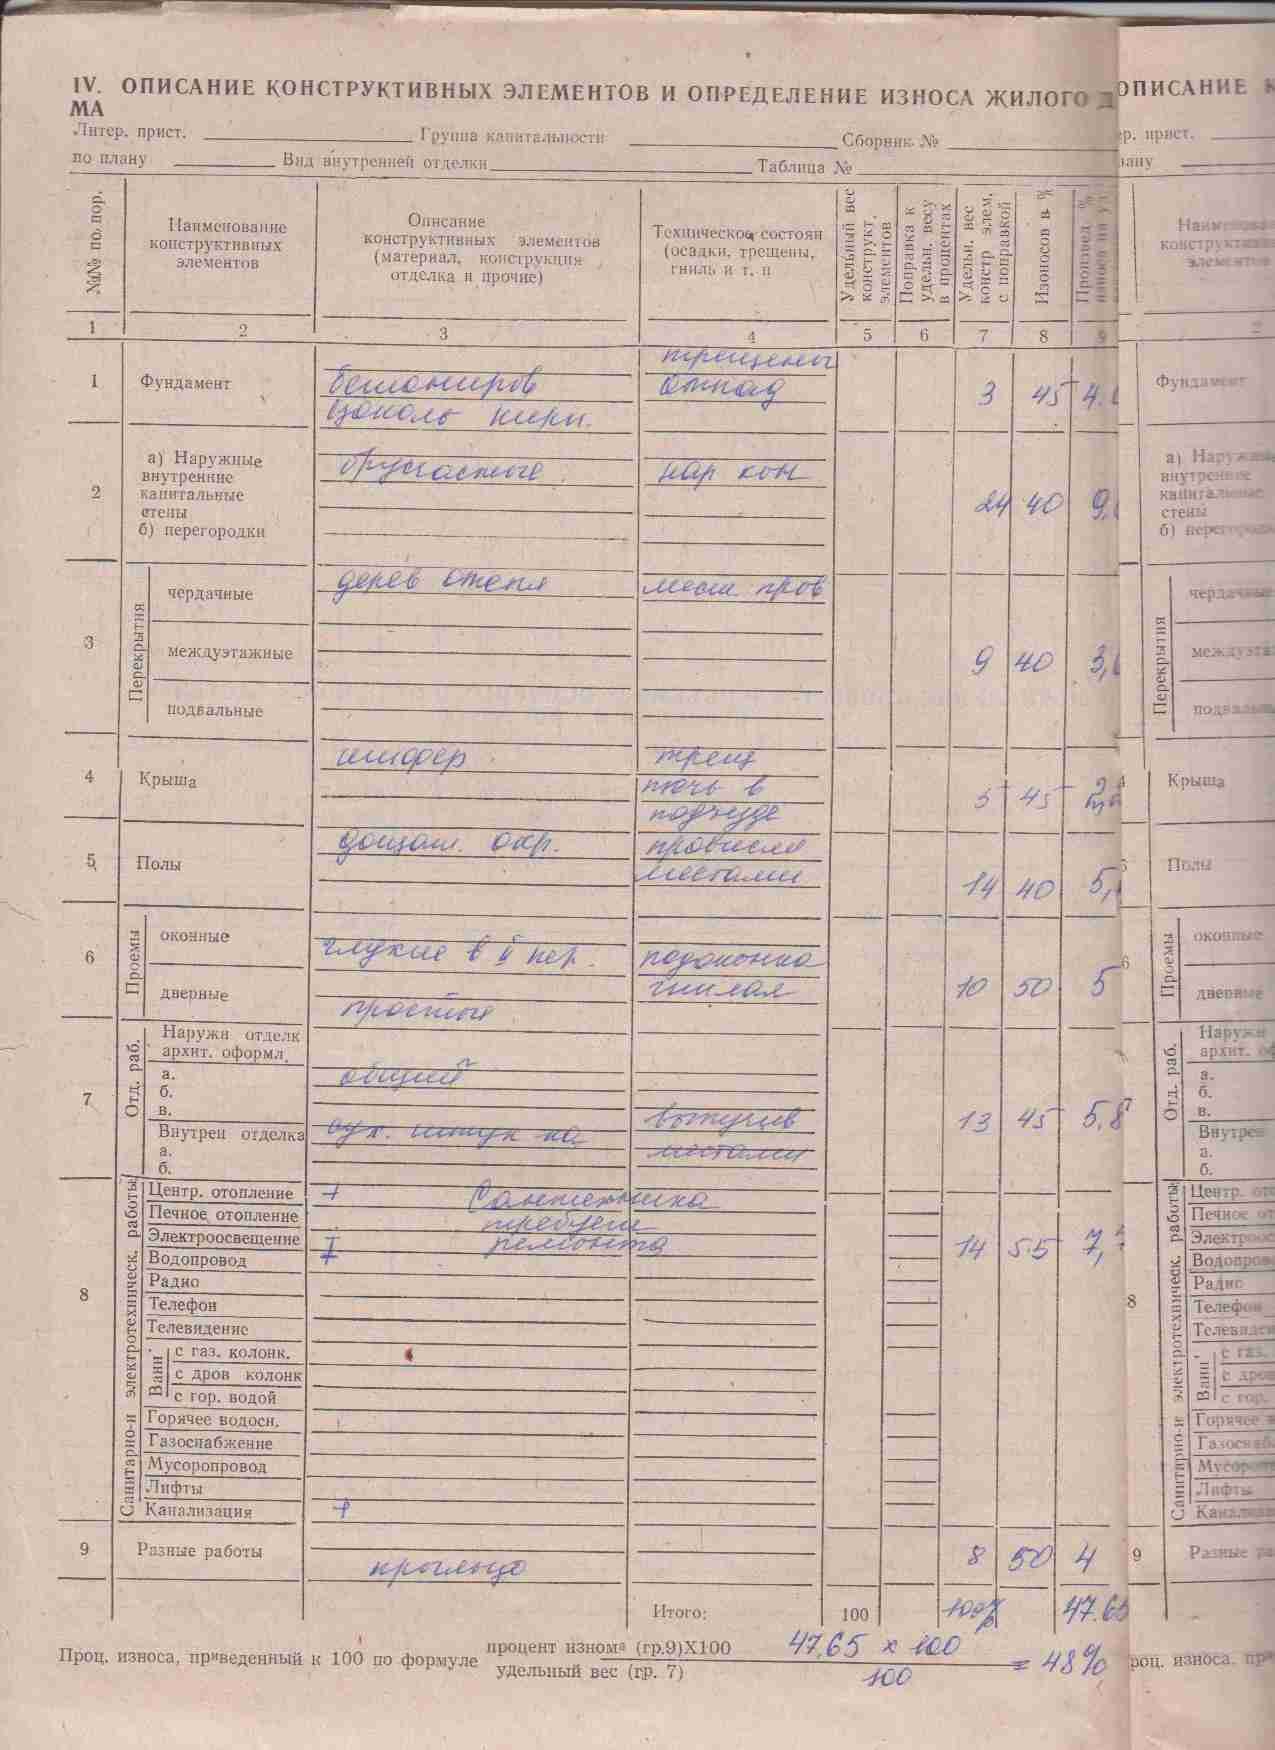 IV. ОПИСАНИЕ КОНСТРУКТИВНЫХ ЭЛЕМЕНТОВ И ОПРЕДЕЛЕНИЕ ИЗНОСА ЖИЛОГО Д
МА
Литер. прист. Группа капитальности Сборник №
по плану Вид внутренней отделки Таблица №
№№ по пор.
Наименование конструктивных элементов
Описание конструктивных элементов (материал, конструкция отделка и прочие)
Техническое состоян (осадки, трещены, гниль и т. п
Удельный вес конструкт. элементов
Поправка к удельн. весу в процентах
Удельн. вес констр элем, с поправкой
Изоносов в %
Произвед %
1 2 3 4 5 6 7 8 9
трещены
1 Фундамент бетониров отпад 3 45 4.
цоколь кирп.
2 а) Наружные внутренние капитальные стены б) перегородки
брусчатые нар кон 24 40 9,
3 Перекрытия
чердачные дерев отепл мест. пров
междуэтажные 9 40 3,
подвальные
4 Крыша шифер трещ
течь в 5 45
подъезде
5 Полы дощат. окр. провисли
местами 14 40 5,
6 Проемы
оконные глухие в II пер. подоконка
дверные гнилая 10 50 5
простые
7 Отд. раб.
Наружн отделк
архит. оформл.
а. общий
б.
в. 13 45 5,8
Внутрен отделка сух. штук ка выпучив
а. местами
б.
8 Санитарно-и электротехническ. работы
Центр. отопление + Сантехника
Печное отопление требует
Электроосвещение ремонта 14 55 7,
Водопровод
Радио
Телефон
Телевидение
Ванн.
с газ. колонк.
с дров колонк
с гор. водой
Горячее водосн.
Газоснабжение
Мусоропровод
Лифты
Канализация +
9 Разные работы крыльцо 8 50 4
Итого: 100 100% 47.65
Проц. износа, приведенный к 100 по формуле процент изнома (гр.9)X100 47,65 x 100
удельный вес (гр. 7) 100 = 48%
ОПИСАНИЕ К
ер. прист.
лану
Фундамент
а) Наружны
внутренние
капитальные
стены
б) перегородк
Перекрытия
чердачные
междуэта
подвальн
4 Крыша
5 Полы
6 Проемы
оконные
дверные
Отд. раб.
Наружн
архит. оф
а.
б.
в.
Внутрен
а.
б.
8 Санитарно-и электротехническ. работы
Центр. ото
Печное от
Электроос
Водопрово
Радио
Телефон
Телевиден
Ванн.
с газ.
с дров
с гор.
Горячее в
Газоснаб
Мусоропр
Лифты
Канализа
9 Разные ра
роц. износа, при